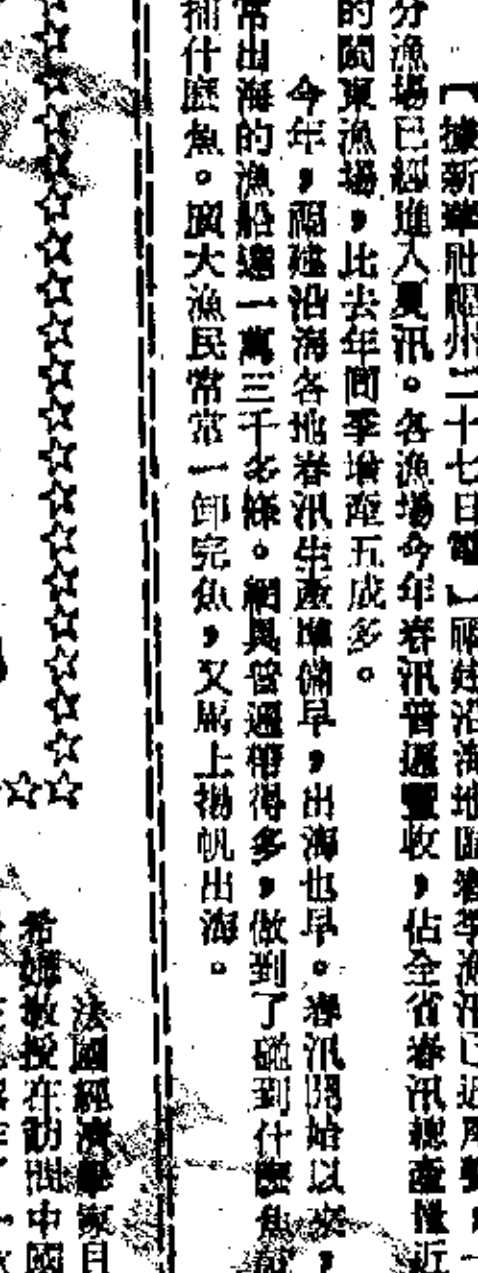 【據新華社福州二十七日電】福建沿海地區春季漁汛已近尾聲，一
分漁場已經進入夏汛。各漁場今年春汛普遍豐收，佔全省春汛總產量近
的閩東漁場，比去年同季增產五成多。
今年，福建沿海各地春汛生產準備早，出海也早。春汛開始以來，
常出海的漁船達一萬三千多條。網具普遍帶得多，做到了碰到什麼魚就
捕什麼魚。廣大漁民常常一卸完魚，又馬上揚帆出海。
法國經濟學家目
希娜教授在訪問中國